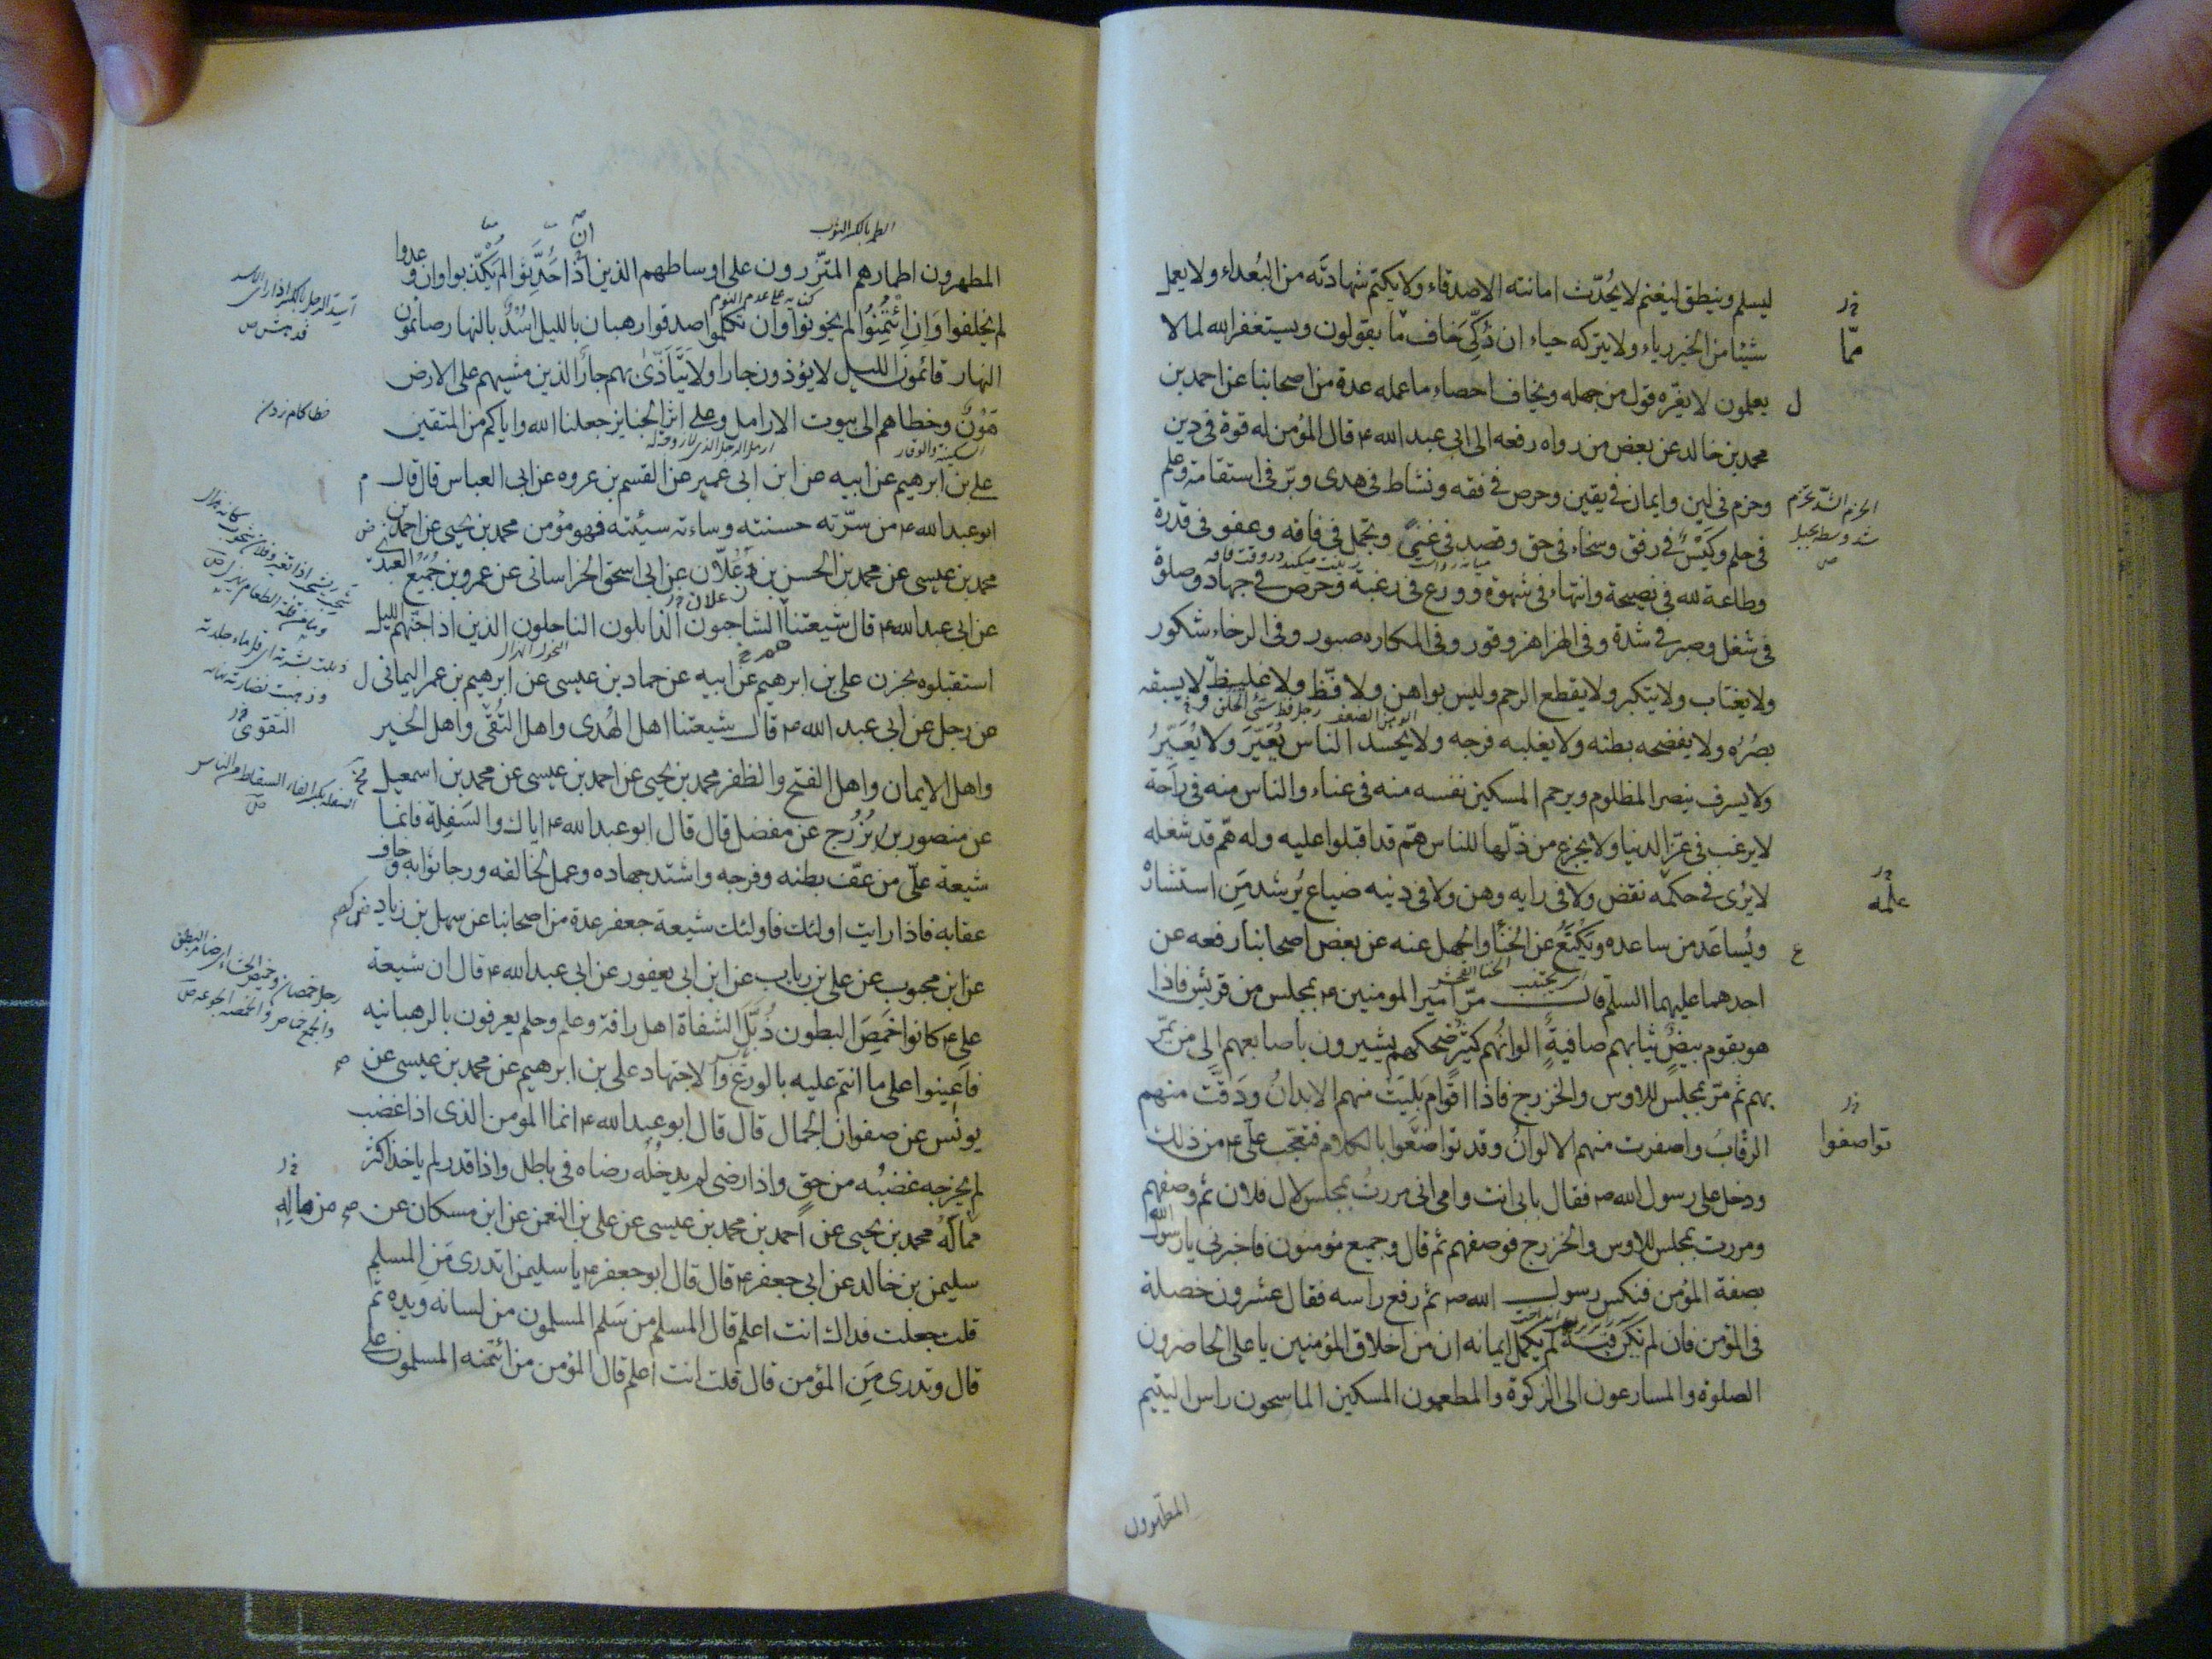 ليسلم وينطق ليغنم لا يحدّث امانته الاصدقاء ولا يكتم شهادته من البُعداء ولا يعمل
شيئا من الخير رياء ولا يتركه حياء ان زُكّى خاف ما يقولون ويستغفر الله لما لا
مما
يعلمون لا يغرّه قول من جهله ويخاف احصاء ما عمله عدة من اصحابنا عن احمد بن
محمد بن خالد عن بعض من رواه رفعه الى ابى عبد الله ع قال المؤمن له قوة فى دين
وحزم فى لين وايمان فى يقين وحرص فى فقه ونشاط فى هدى وبرّ فى استقامة وعلم
فى حلم وكيس فى رفق وسخاء فى حق وقصد فى غنى وتجمل فى فاقه وعفو فى قدرة
وطاعة لله فى نصيحة وانتهاء فى شهوة وورع فى رغبة وحرص فى جهاد وصلوة
فى شغل وصبر فى شدة وفى الهزاهز وقور وفى المكاره صبور وفى الرخاء شكور
ولا يغتاب ولا يتكبر ولا يقطع الرحم وليس بواهن ولا فظّ ولا غليظ لا يسبقه
بصره ولا يفضحه بطنه ولا يغلبه فرجه ولا يحسد الناس يُعَيَّرَ ولا يُعَيِّرُ
ولا يسرف ينصر المظلوم ويرحم المسكين نفسه منه فى عناء والناس منه فى راحة
لا يرغب فى عزّ الدنيا ولا يجزع من ذلّها للناس همّ قد اقبلوا عليه وله همّ قد شغله
لا يُرى فى حكمه نقض ولا فى رايه وهن ولا فى دينه ضياع يُرشد مَنِ استشاره
علمه
ويُساعد من ساعده ويَكِيعُ عن الخنا والجهل عنه عن بعض اصحابنا رفعه عن
احدهما عليهما السلم قال مرّ امير المومنين ع بمجلس من قريش فاذا
هو بقوم بيضٌ ثيابهم صافيةٍ الوانُهم كثيرٌ ضحكهم يشيرون باصابعهم الى من يمرّ
بهم ثم مرّ بمجلس للاوس والخزرج فاذا اقوام بَلِيَتْ منهم الابدانُ ودَقَّت منهم
الرقابُ واصفرت منهم الالوانُ وقد تواضَعُوا بالكلام فتعجّب علىّ ع من ذلك
تواصفوا
ودخل على رسول الله ص فقال بابى انت وامى انى مررتُ بمجلس لال فلان ثم وصفهم
ومررت بمجلس للاوس والخزرج فوصفهم ثم قال وجميع مؤمنون فاخبرنى يا رسول الله
بصفة المؤمن فنكس رسول الله ص ثم رفع راسه فقال عشرون خصلة
فى المؤمن فان لم تكن فيه لم يكمل ايمانه ان من اخلاق المؤمنين يا على الحاضرون
الصلوة والمسارعون الى الزكوة والمطعمون المسكين الماسحون راس اليتيم
المطهرون
الطمر بالكسر الثوب
المطهرون اطمارهم المتّزرون على اوساطهم الذين ان حَدَّثوا لم يكذبوا وان وعدوا
لم يخلفوا وَاِنِ ائتُمِنُوا لم يخونوا وان تكلموا صدقوا رهبان بالليل اُسُدٌ بالنهار صائمون
النهار قائمون الليل لا يؤذون جارا ولا يتأذى بهم جار الذين مشيهم على الارض
هَوْنٌ وخطاهم الى بيوت الارامل وعلى اثر الجنايز جعلنا الله واياكم من المتقين
خطا كام زدن
على بن ابرهيم عن ابيه عن ابن ابى عمير عن القسم بن عروه عن ابى العباس قال قال
ابو عبد الله ع من سرّته حسنته وساءته سيئته فهو مؤمن محمد بن يحيى عن احمد بن
محمد بن عيسى عن محمد بن الحسن بن علّان عن ابى اسحق الخراسانى عن عمرو بن جُمَيع العبدى
عن ابى عبد الله ع قال شيعتنا الشاحبون الذابلون الناحلون الذين اذا جنّهم الليل
استقبلوه بحزن على بن ابرهيم عن ابيه عن حماد بن عيسى عن ابرهيم بن عمر اليمانى
عن رجل عن ابى عبد الله ع قال شيعتنا اهل الهُدى واهل التُقى واهل الخير
التقوى
واهل الايمان واهل الفتح والظفر محمد بن يحيى عن احمد بن عيسى عن محمد بن اسمعيل
عن منصور بن بُزُرج عن مفضل قال قال ابو عبد الله ع اياك والسَفِلَة فانما
شيعة علىّ من عفّ بطنه وفرجه واشتد جهاده وعمل لخالقه ورجا ثوابه وخاف
عقابه فاذا رايت اولئك فاولئك شيعة جعفر عدة من اصحابنا عن سهل بن زياد
عن ابن محبوب عن على بن رياب عن ابن ابى يعفور عن ابى عبد الله ع قال ان شيعة
على ع كانوا خُمُصَ البطون ذُبَّلَ الشفاة اهل رافة وعلم وحلم يعرفون بالرهبانيه
فاَعِينوا على ما انتم عليه بالورع والاجتهاد على بن ابرهيم عن محمد بن عيسى عن
يونس عن صفوان الجمال قال قال ابو عبد الله ع انما المؤمن الذى اذا غضب
لم يخرجه غضبُه من حقٍ واذا رضى لم يدخله رضاه فى باطل واذا قدر لم ياخذ اكثر
مماله محمد بن يحيى عن احمد بن محمد بن عيسى عن على بن النعمن عن ابن مسكان عن
من ماله
سليمن بن خالد عن ابى جعفر ع قال قال ابو جعفر ع يا سليمن اتدرى مَنِ المسلم
قلت جعلت فداك انت اعلم قال المسلم من سَلم المسلمون من لسانه ويده ثم
قال وتدرى مَنِ المؤمن قال قلت انت اعلم قال المؤمن من ائتمنه المسلمون على